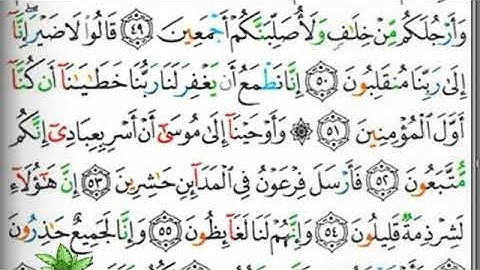 وَأَرْجُلَكُم مِّنْ خِلَٰفٍ وَلَأُصَلِّبَنَّكُمْ أَجْمَعِينَ ٤٩ قَالُوا۟ لَا ضَيْرَ ۖ إِنَّآ
إِلَىٰ رَبِّنَا مُنقَلِبُونَ ٥٠ إِنَّا نَطْمَعُ أَن يَغْفِرَ لَنَا رَبُّنَا خَطَٰيَٰنَآ أَن كُنَّآ
أَوَّلَ ٱلْمُؤْمِنِينَ ٥١ ۞ وَأَوْحَيْنَآ إِلَىٰ مُوسَىٰٓ أَنْ أَسْرِ بِعِبَادِىٓ إِنَّكُم
مُّتَّبَعُونَ ٥٢ فَأَرْسَلَ فِرْعَوْنُ فِى ٱلْمَدَآئِنِ حَٰشِرِينَ ٥٣ إِنَّ هَٰٓؤُلَآءِ
لَشِرْذِمَةٌ قَلِيلُونَ ٥٤ وَإِنَّهُمْ لَنَا لَغَآئِظُونَ ٥٥ وَإِنَّا لَجَمِيعٌ حَٰذِرُونَ